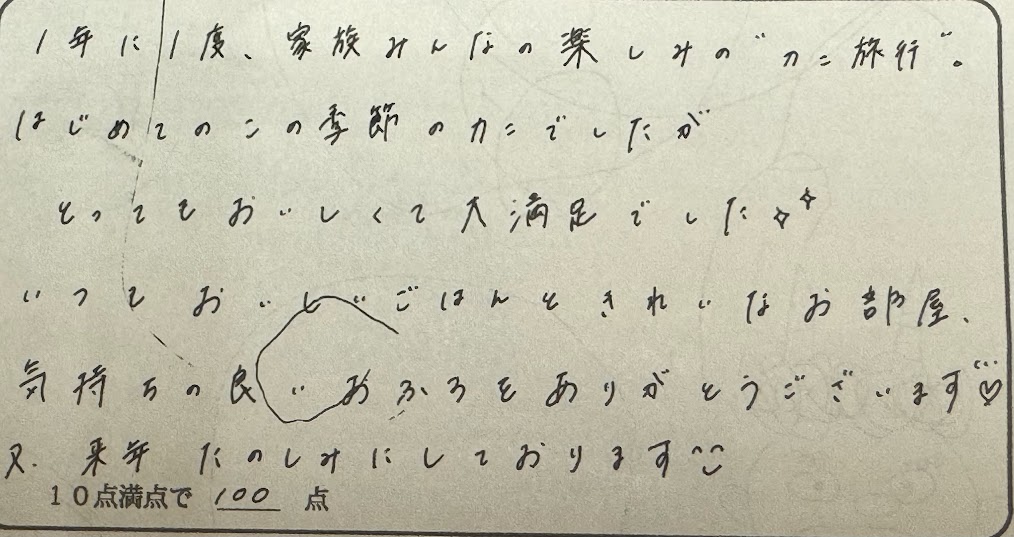 1年に1度、家族みんなの楽しみの"カニ旅行"。
はじめてのこの季節のカニでしたが
とってもおいしくて大満足でした☆☆
いつもおいしいごはんときれいなお部屋、
気持ちの良いおふろをありがとうございます♡
又、来年たのしみにしております
10点満点で 100 点